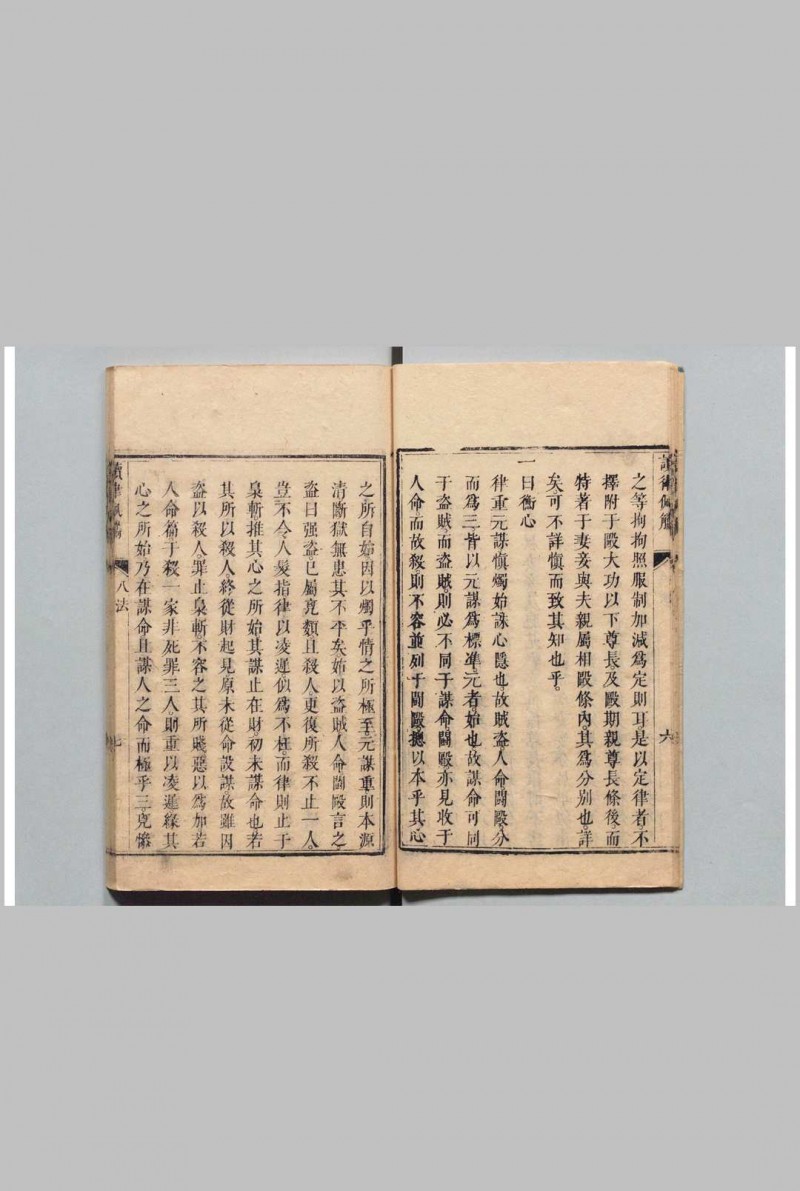 讀律佩觿
六
之等拘拘照服制加減爲定則耳是以定律者不
擇附于毆大功以下尊長及毆期親尊長條後而
特著于妻妾與夫親屬相毆條內其爲分别也詳
矣可不詳慎而致其知也乎
一曰衡心
律重元謀慎燭始誅心隱也故賊盗人命鬪毆分
而爲三皆以元謀爲標準元者始也故謀命可同
于盗賊而盗賊則必不同于謀命鬪毆亦見收于
人命而故殺則不容並列于鬪毆摠以本乎其心
之所自始因以燭乎情之所極至元謀重則本源
清斷獄無患其不平矣姑以盗賊人命鬪毆言之
盗曰强盗已屬兇類且殺人更復所殺不止一人
豈不令人髮指律以凌遲似爲不枉而律則止于
梟斬推其心之所始其謀止在財初未謀命也若
其所以殺人終從財起見原未從命設謀故雖因
盗以殺人罪止梟斬不容之其所賤惡以爲加若
人命篇于殺一家非死罪三人則重以凌遲緣其
心之所始乃在謀命且謀人之命而極乎三兇慘
八法
七